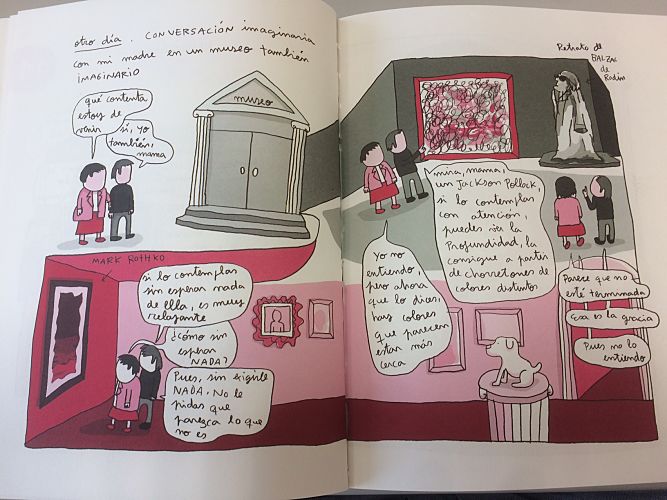 otro día. CONVERSACIÓN imaginaria
con mi madre en un museo también
IMAGINARIO
qué contenta
estoy de
venir
sí, yo
también,
mamá
museo
MARK ROTHKO
si lo contemplas
sin esperar nada
de ella, es muy
relajante
¿cómo sin
esperar
NADA?
Pues, sin exigirle
NADA. No le
pidas que
parezca lo que
no es
mira, mamá,
un Jackson Pollock,
si lo contemplas
con atención,
puedes ver la
Profundidad, la
consigue a partir
de chorretones de
colores distintos
Yo no
entiendo,
pero ahora
que lo dices,
hay colores
que parecen
estar más
cerca
Retrato de
BALZAC
de
Rodin
Parece que no
esté terminada
Esa es la gracia
Pues no lo
entiendo